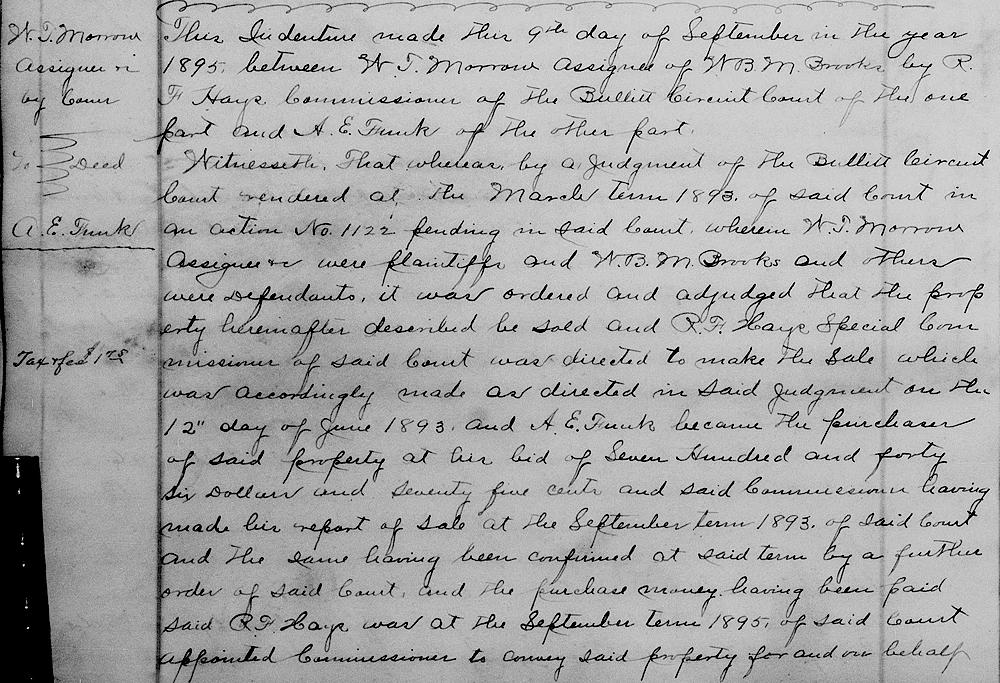 W. T. Morrow
Assignee &c
by Comr
To Deed
A. E. Funk
Tax & fee $1.75
This Indenture made this 9th day of September in the year
1895, between W T. Morrow Assignee of W B. M. Brooks by R.
F Hays Commissioner of the Bullitt Circuit Court of the one
part and A. E. Funk of the other part.
Witnesseth, That whereas, by a Judgment of the Bullitt Circuit
Court rendered at the March term 1893. of said Court in
an action No. 1122 pending in said Court, wherein W. T. Morrow
Assignee &c were plaintiffs and W. B. M. Brooks and others
were Defendants, it was ordered and adjudged that the prop
erty hereinafter described be sold and R. F. Hays Special Com
missioner of said Court was directed to make the Sale which
was accordingly made as directed in said Judgment on the
12" day of June 1893. and A. E. Funk became the purchaser
of said property at his bid of Seven Hundred and forty
Six Dollars and Seventy five cents and said Commissioner having
made his report of Sale at the September term 1893. of said Court
and the same having been confirmed at said term by a further
order of said Court, and the purchase money having been paid
said R. F. Hays was at the September term 1895, of said Court
appointed Commissioner to convey said property for and on behalf